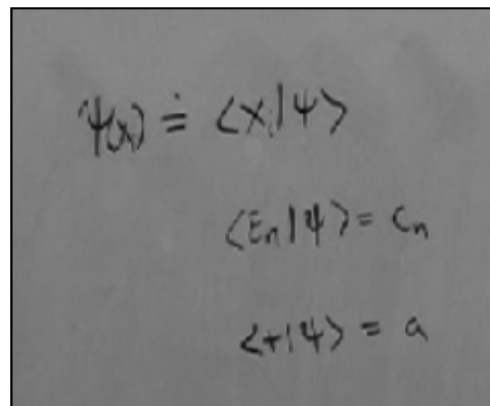 ψ(x) ≐ ⟨x|ψ⟩
⟨Eₙ|ψ⟩ = cₙ
⟨+|ψ⟩ = a